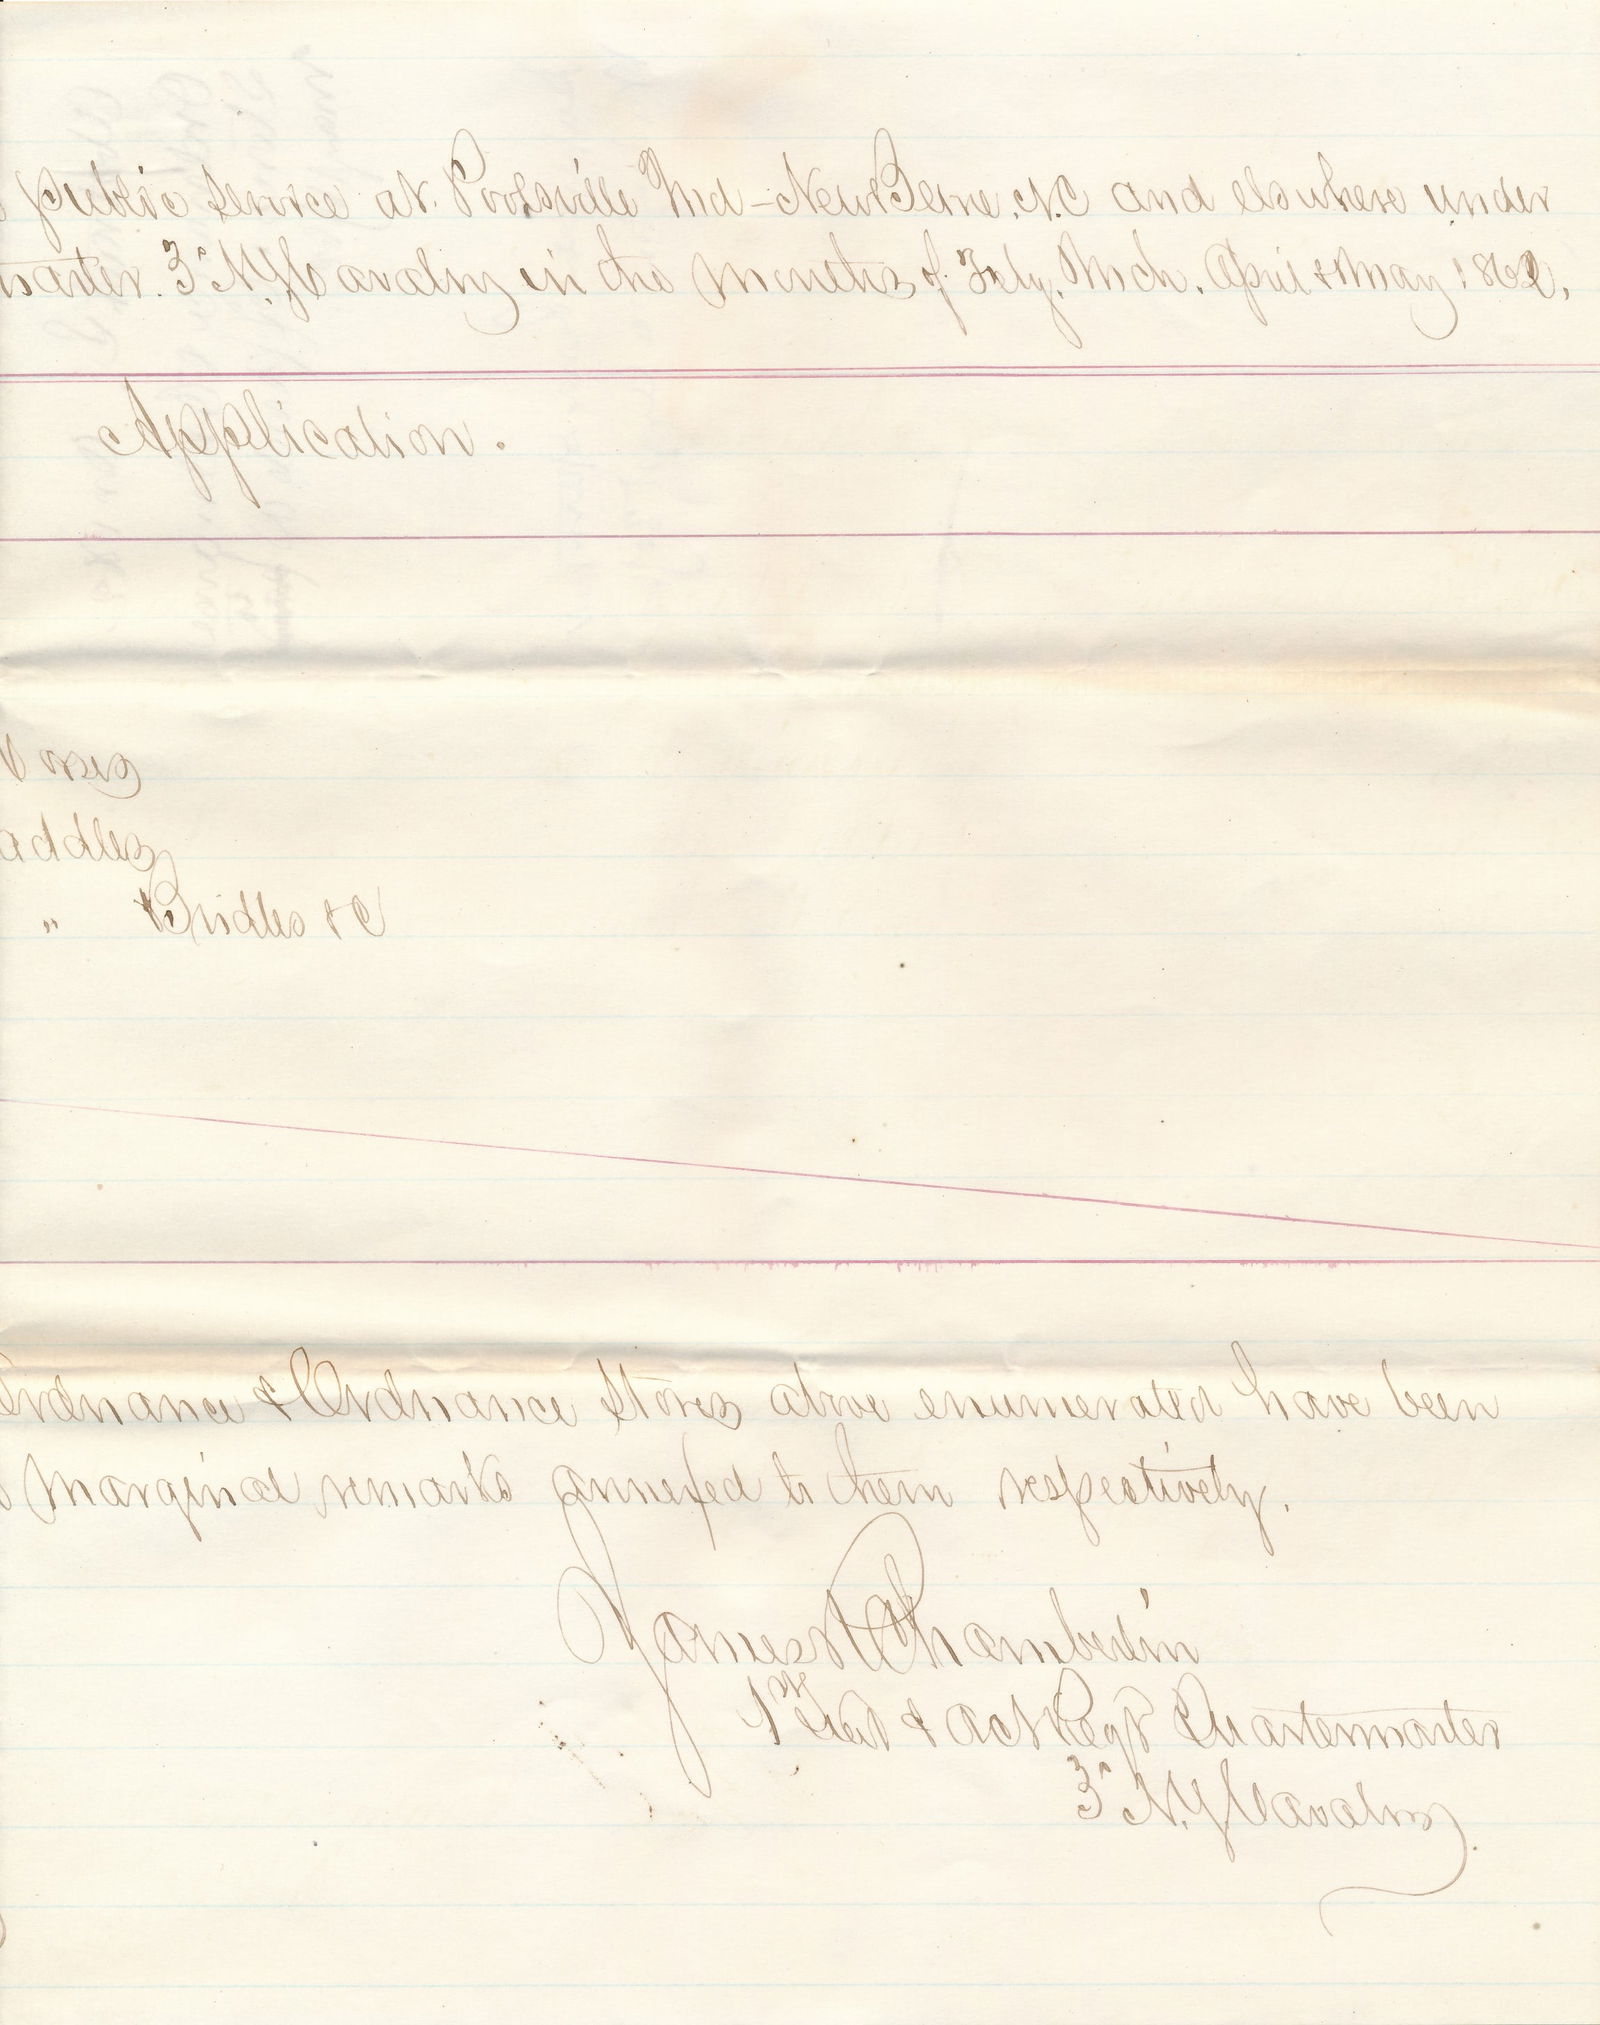 public service at Poolsville Md - New Berne. N.C and elsewhere under
master. 3" N.Y. Cavalry in the months of Feby. Mch. April & May 1862.
Application.
orses
addles
" Bridles & C
Ordnance & Ordnance Stores above enumerated have been
marginal remarks annexed to them respectively.
James R Chamberlin
1st Lieut & Act Regt Quartermaster
3" N.Y Cavalry